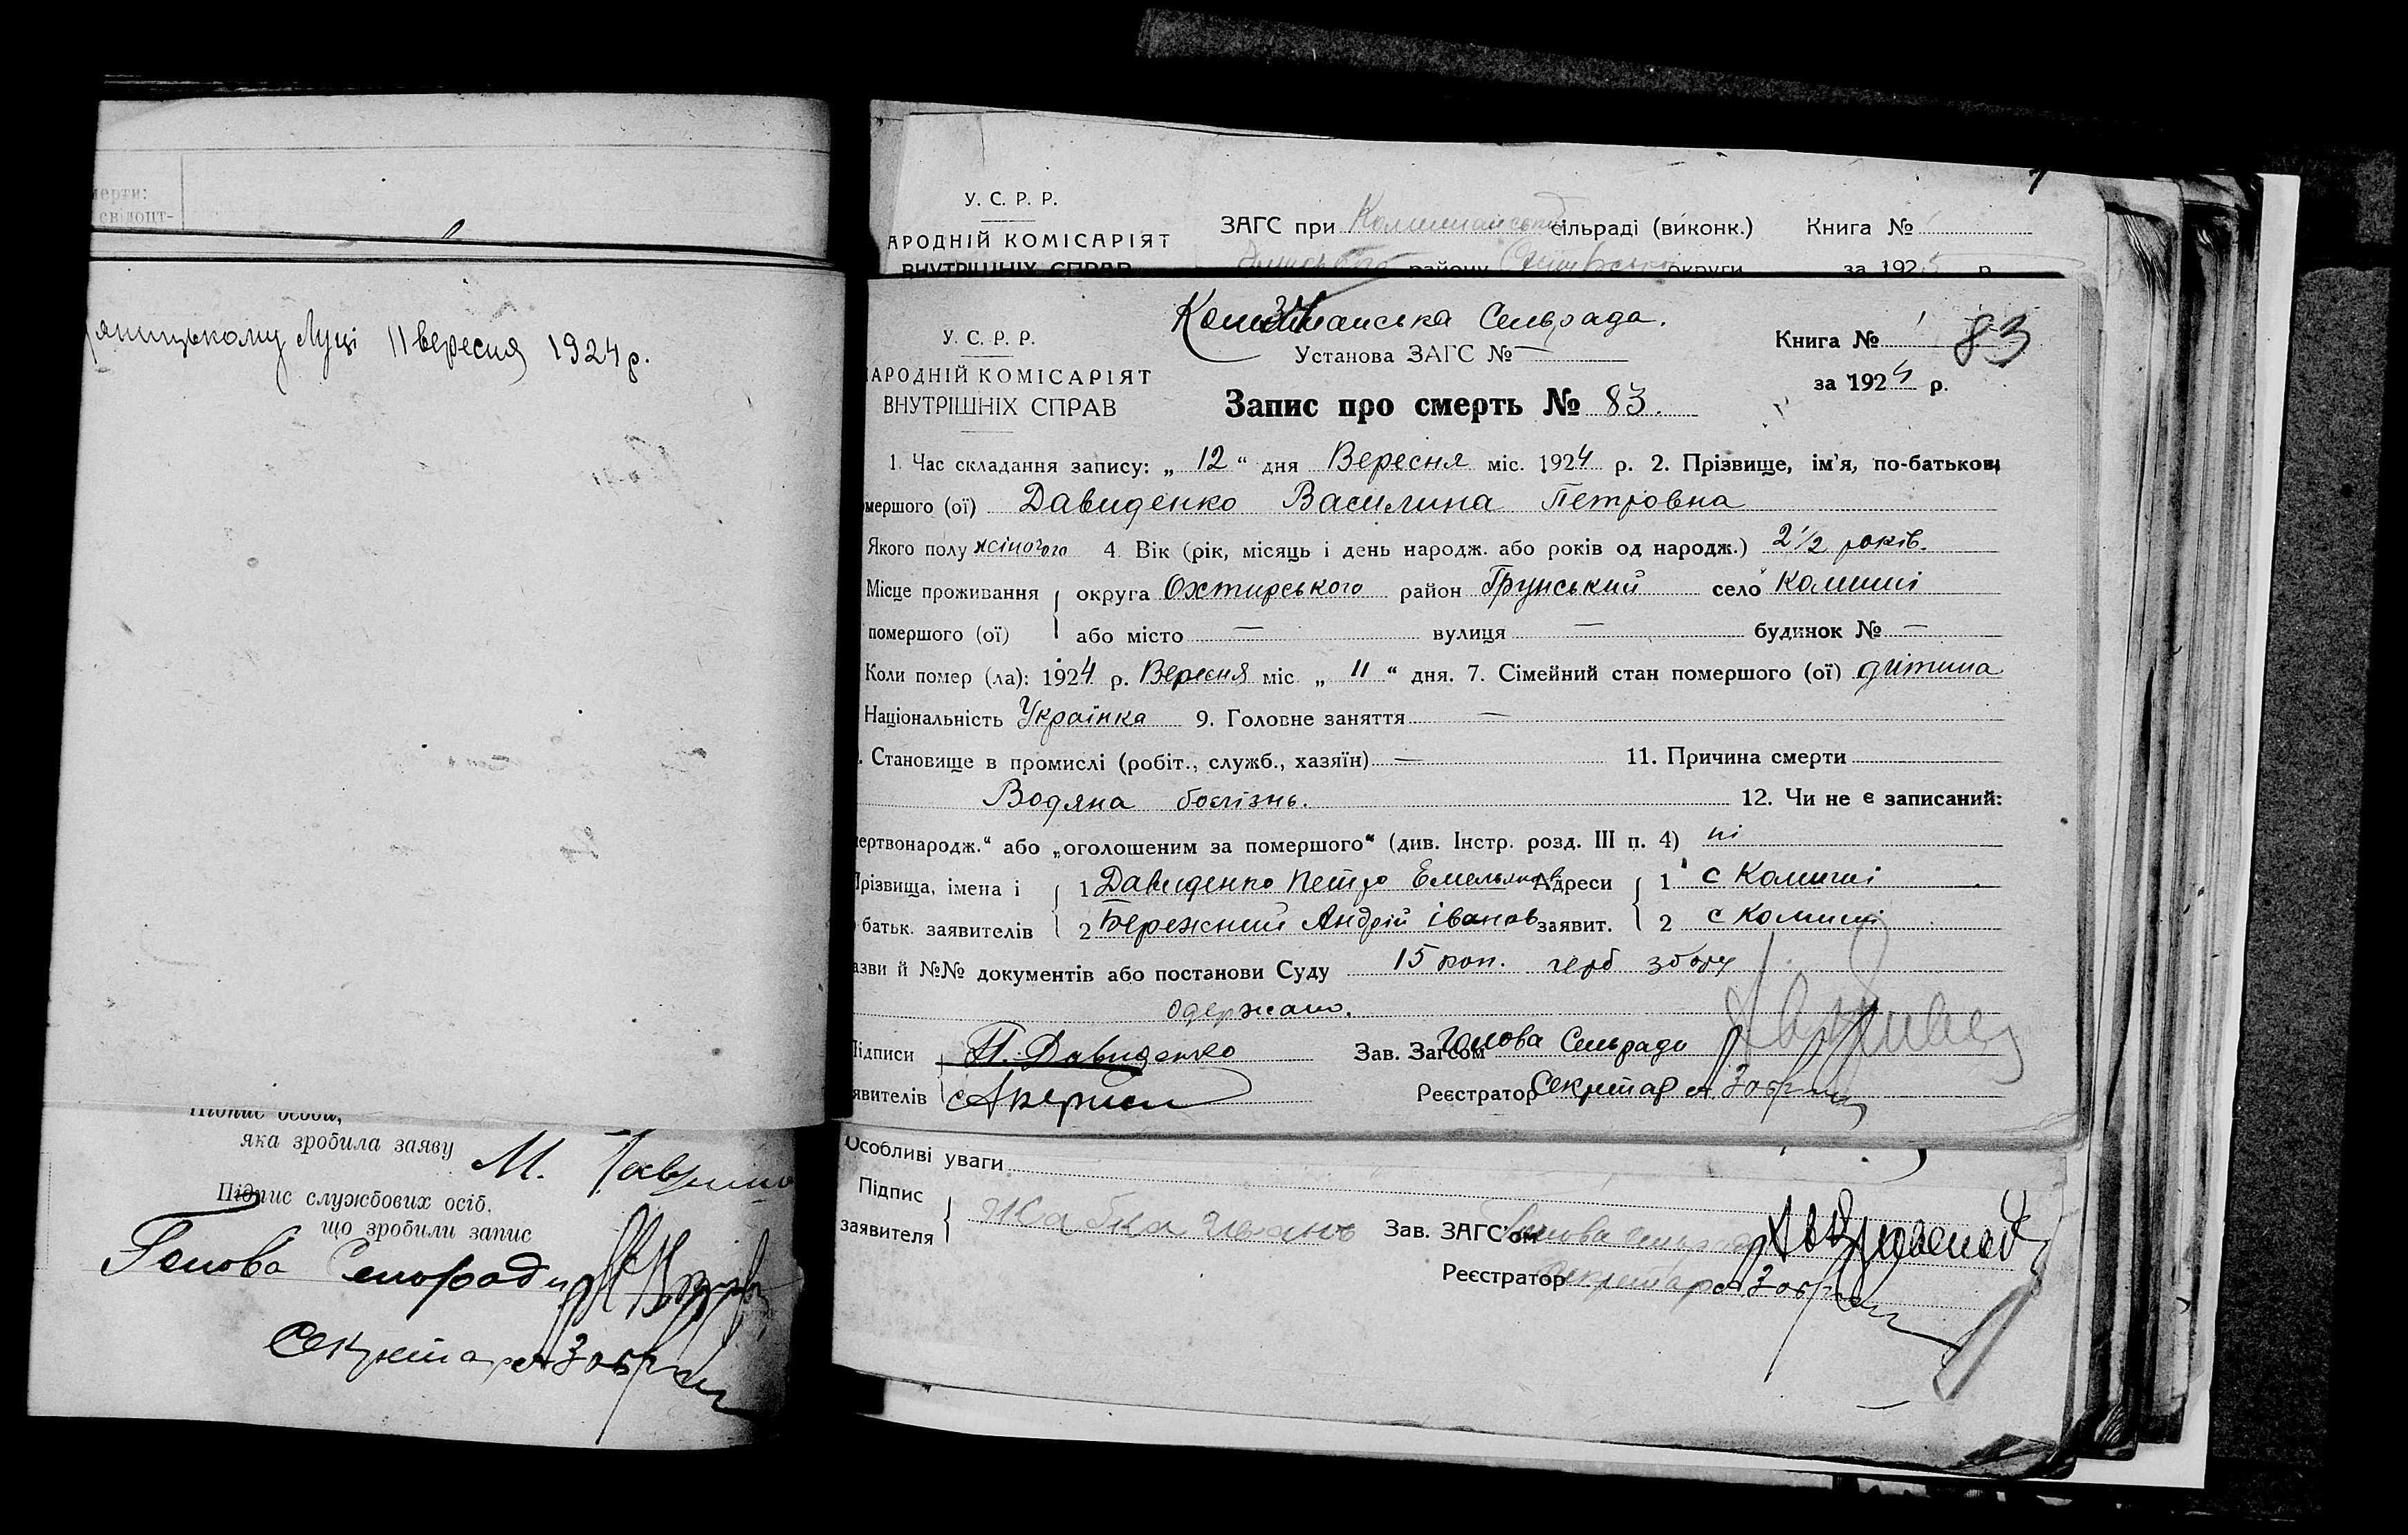 мерти:
свідоцт-
яницькому Луці 11 вересня 1924 р.
яка зробила заяву
М.
Підпис службових осіб,
що зробили запис
Голова Сельради
Секретар
У. С. Р. Р.
АРОДНІЙ КОМІСАРІЯТ
ВНУТРІШНІХ СПРАВ
ЗАГС при сільраді (виконк.) Книга №
району округи за 192 р
Сельрада.
У. С. Р. Р.
АРОДНІЙ КОМІСАРІЯТ
ВНУТРІШНІХ СПРАВ
Установа ЗАГС № —
Запис про смерть № 83.
Книга № 1 83
за 1924 р.
1. Час складання запису: „ 12 “ дня Вересня міс. 1924 р. 2. Прізвище, ім’я, по-батькові
мершого (ої) Давиденко Василина Петровна
Якого полу жіночого 4. Вік (рік, місяць і день народж. або років од народж.) 2 1/2 років.
Місце проживання округа Охтирського район Грунський село Комиші
помершого (ої) або місто — вулиця — будинок № —
Коли помер (ла): 1924 р. Вересня міс. „ 11 “ дня. 7. Сімейний стан помершого (ої) дитина
Національність Українка 9. Головне заняття —
. Становище в промислі (робіт., служб., хазяїн) — 11. Причина смерти
Водяна болізнь. 12. Чи не є записаний:
ертвонародж.“ або „оголошеним за помершого“ (див. Інстр. розд. III п. 4) ні
Прізвища, імена і 1 Давиденко Петро Емельянов Адреси 1 с Комиші
батьк. заявителів 2 Бережний Андрій іванов заявит. 2 с Комиші
азви й №№ документів або постанови Суду 15 коп. герб збору
одержано.
Підписи П. Давиденко Зав. Загсом Голова Сельради
явителів Реєстратор Секретар
Особливі уваги
Підпис
заявителя Жабка Зав. ЗАГС'ом Голова
Реєстратор Секретар